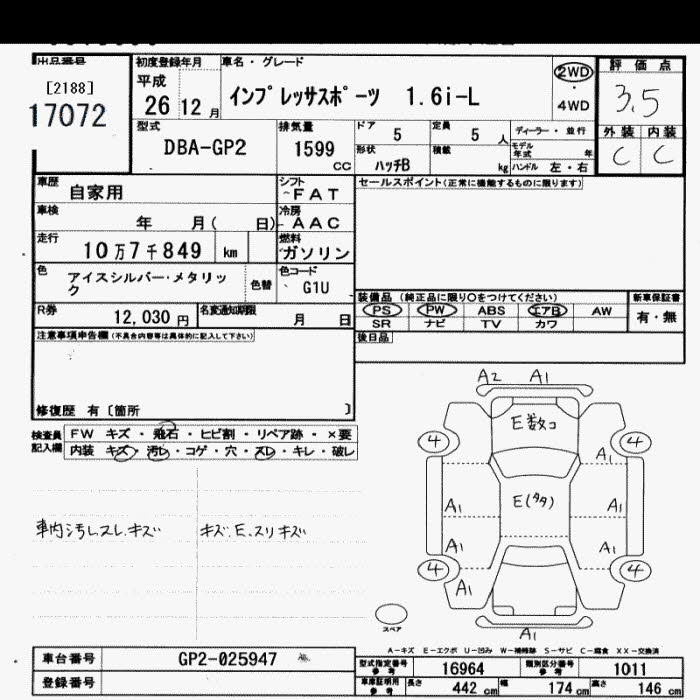 出品番号
[2188]
17072
初度登録年月
平成
26 12 月
車名・グレード
インプレッサスポーツ 1.6i-L
2WD
・
4WD
評価点
3.5
外装 内装
C C
型式
DBA-GP2
排気量
1599
CC
ドア
5
定員
5 人
ディーラー・並行
形状
ハッチB
積載
kg
モデル
年式 年
ハンドル 左・右
車歴
自家用
シフト
FAT
セールスポイント(正常に機能するものに限ります)
車検
年 月( 日)
冷房
AAC
走行
10万7千849 km
燃料
ガソリン
色
アイスシルバー・メタリック
色替
色コード
G1U
装備品 (純正品に限り○をつけてください)
新車保証書
PS PW ABS エアB AW
有・無
SR ナビ TV カワ
R券
12,030 円
名変通知期限
月 日
後日品
注意事項申告欄(不具合内容等は具体的に記入して下さい)
修復歴 有〔箇所 〕
検査員
記入欄
FW キズ・飛石・ヒビ割・リペア跡・×要
内装 キズ・汚レ・コゲ・穴・スレ・キレ・破レ
車内汚レスレキズ キズ.E.スリキズ
A2 A1
E数コ
4 4
A1
E(タタ)
A1 A1
A1 A1
4 4
A1
A1
スペア
A-キズ E-エクボ U-凹み W-補修跡 S-サビ C-腐食 XX-交換済
車台番号
GP2-025947
登録番号
型式指定番号
参考
16964
類別区分番号
参考
1011
車庫証明用
参考
長さ
442 cm
幅
174 cm
高さ
146 cm